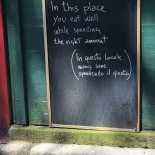 In this place
you eat well
while spending
the right amount
(In questo locale
mangi bene
spendendo il giusto)